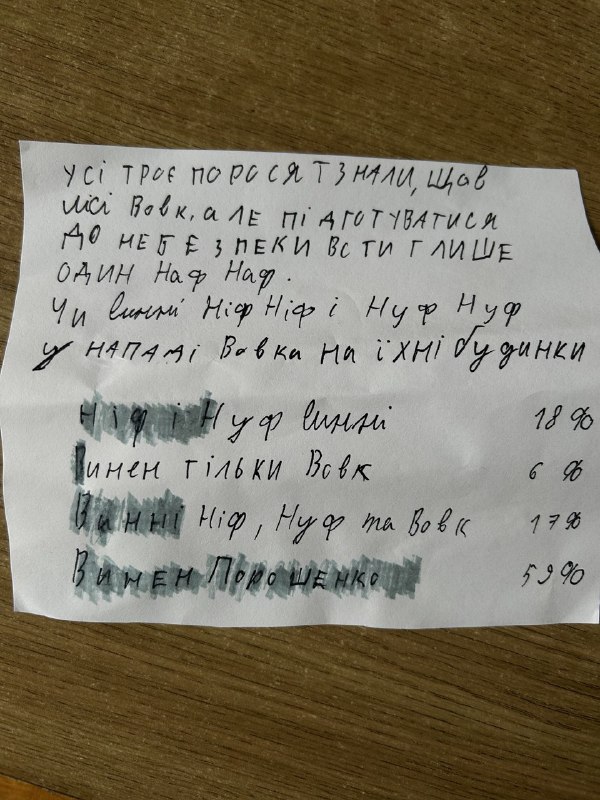 УСІ ТРОЄ ПОРОСЯТ ЗНАЛИ, ЩО В
ЛІСІ Вовк, а ЛЕ ПІДГОТУВАТИСЯ
ДО НЕБЕЗПЕКИ ВСТИГ ЛИШЕ
ОДИН Наф Наф.
Чи винні Ніф Ніф і Нуф Нуф
у НАПАДі Вовка на їХНі будинки
Ніф і Нуф винні 18%
Винен тільки Вовк 6 %
Винні Ніф, Нуф та Вовк 17%
Винен Порошенко 59%